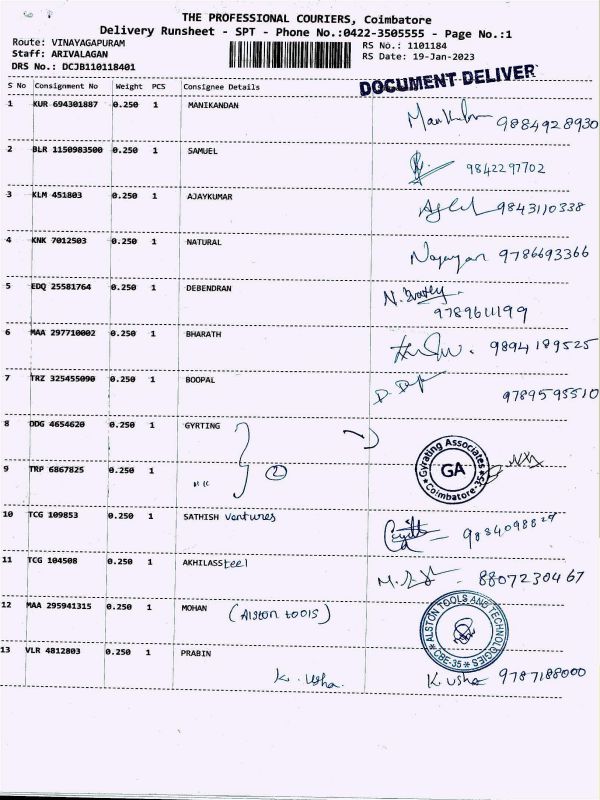 THE PROFESSIONAL COURIERS, Coimbatore
Delivery Runsheet - SPT - Phone No.:0422-3505555 - Page No.:1
Route: VINAYAGAPURAM RS No.: 1101184
Staff: ARIVALAGAN RS Date: 19-Jan-2023
DRS No.: DCJB110118401
DOCUMENT DELIVER
S No Consignment No Weight PCS Consignee Details
1 KUR 694301887 0.250 1 MANIKANDAN 9884928930
2 BLR 1150983500 0.250 1 SAMUEL 9842297702
3 KLM 451803 0.250 1 AJAYKUMAR 9843110338
4 KNK 7012503 0.250 1 NATURAL Narayan 9786693366
5 EDQ 25581764 0.250 1 DEBENDRAN
9789611199
6 MAA 297710002 0.250 1 BHARATH 9894189525
7 TRZ 325455090 0.250 1 BOOPAL 9789595510
8 DDG 4654620 0.250 1 GYRTING
Gyrating Associates
GA
Coimbatore-35
9 TRP 6867825 0.250 1 2
10 TCG 109853 0.250 1 SATHISH ventures
11 TCG 104508 0.250 1 AKHILASSteel 8807230467
12 MAA 295941315 0.250 1 MOHAN (Alston tools)
ALSTON TOOLS AND TECHNOLOGIES
CBE-35
13 VLR 4812803 0.250 1 PRABIN
K. Usha. K. Usha 9787188000